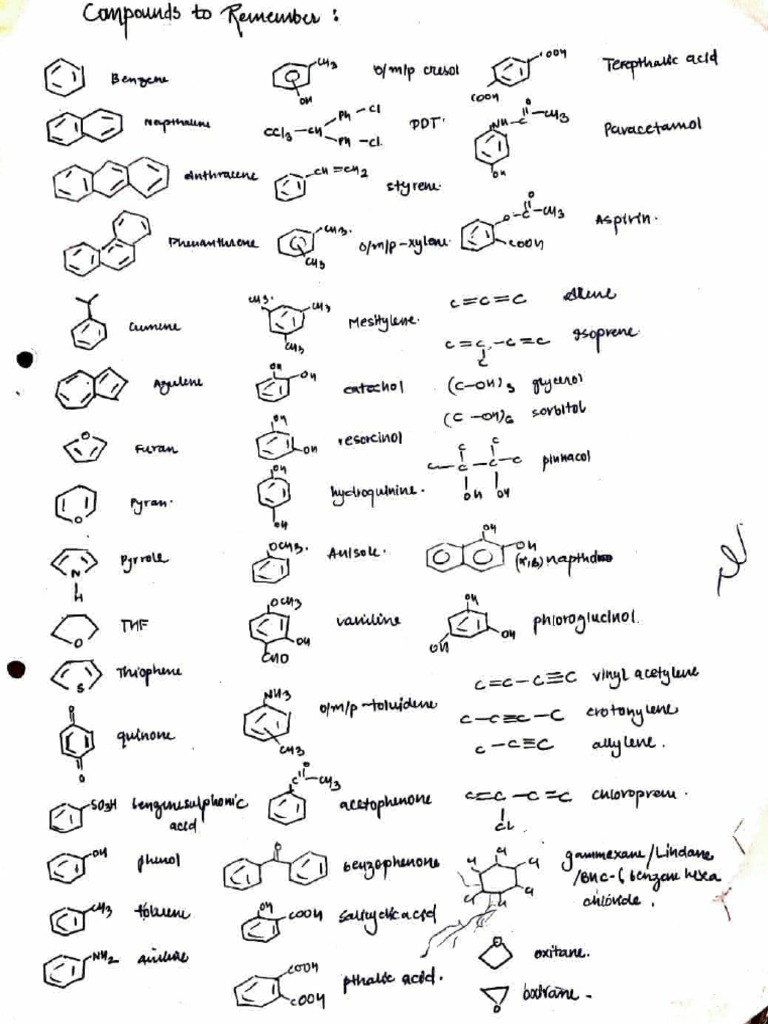 Compounds to Remember :
Benzene
Napthalene
Anthracene
Phenanthrene
Cumene
Azulene
O
Furan
O
Pyran.
N
H
Pyrrole
O
THF
S
Thiophene
O
O
quinone
SO3H
benzenesulphonic
acid
OH
phenol
CH3
toluene
NH2
aniline
CH3
OH
o/m/p cresol
CCl3-CH
Ph-Cl
Ph-Cl
DDT.
CH=CH2
styrene.
CH3.
CH3
o/m/p-xylene.
CH3.
CH3
CH3
Mesitylene.
OH
OH
catechol
OH
OH
resorcinol
OH
OH
hydroquinine.
OCH3.
Anisole.
OCH3
OH
CHO
vaniline
NH3
CH3
o/m/p-toluidene
O
C
CH3
acetophenone
O
benzophenone
OH
COOH
salicylic acid
COOH
COOH
pthalic acid.
COOH
COOH
Terepthalic acid
NH-C-CH3
O
OH
Paracetamol
O-C-CH3
O
COOH
Aspirin.
C=C=C
Allene
C=C-C=C
C
Isoprene.
(C-OH)3 glycerol
(C-OH)6 sorbitol
C C
C-C-C-C
OH OH
pinnacol
OH
OH
(α,β) napthol
OH
OH
OH
phloroglucinol.
C=C-C≡C vinyl acetylene
C-C≡C-C crotonylene
C-C≡C allylene.
C=C-C=C
Cl
chloroprene.
Cl
Cl
Cl
Cl
Cl
Cl
gammexane/Lindane
/BHC-(benzene hexa
chloride.
O
oxitane.
O
oxirane-